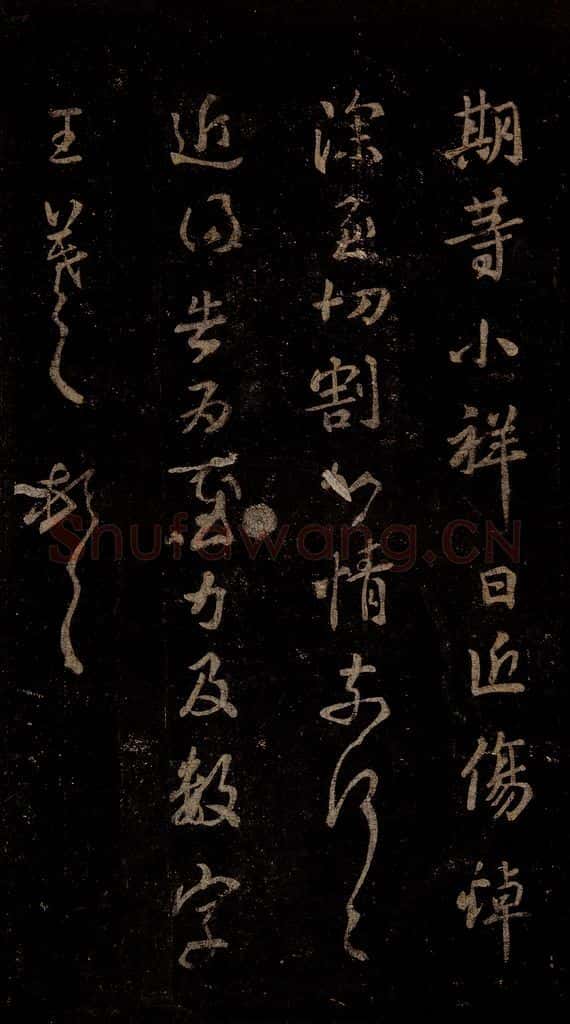 期等小祥日近傷悼
深至切割心情奈何〻
近得告為慰力及數字
王羲之頓首
Shufawang.CN